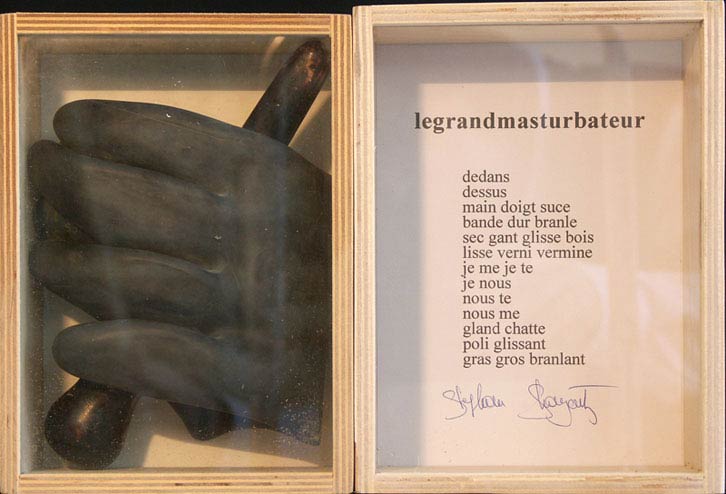 legrandmasturbateur
dedans
dessus
main doigt suce
bande dur branle
sec gant glisse bois
lisse verni vermine
je me je te
je nous
nous te
nous me
gland chatte
poli glissant
gras gros branlant